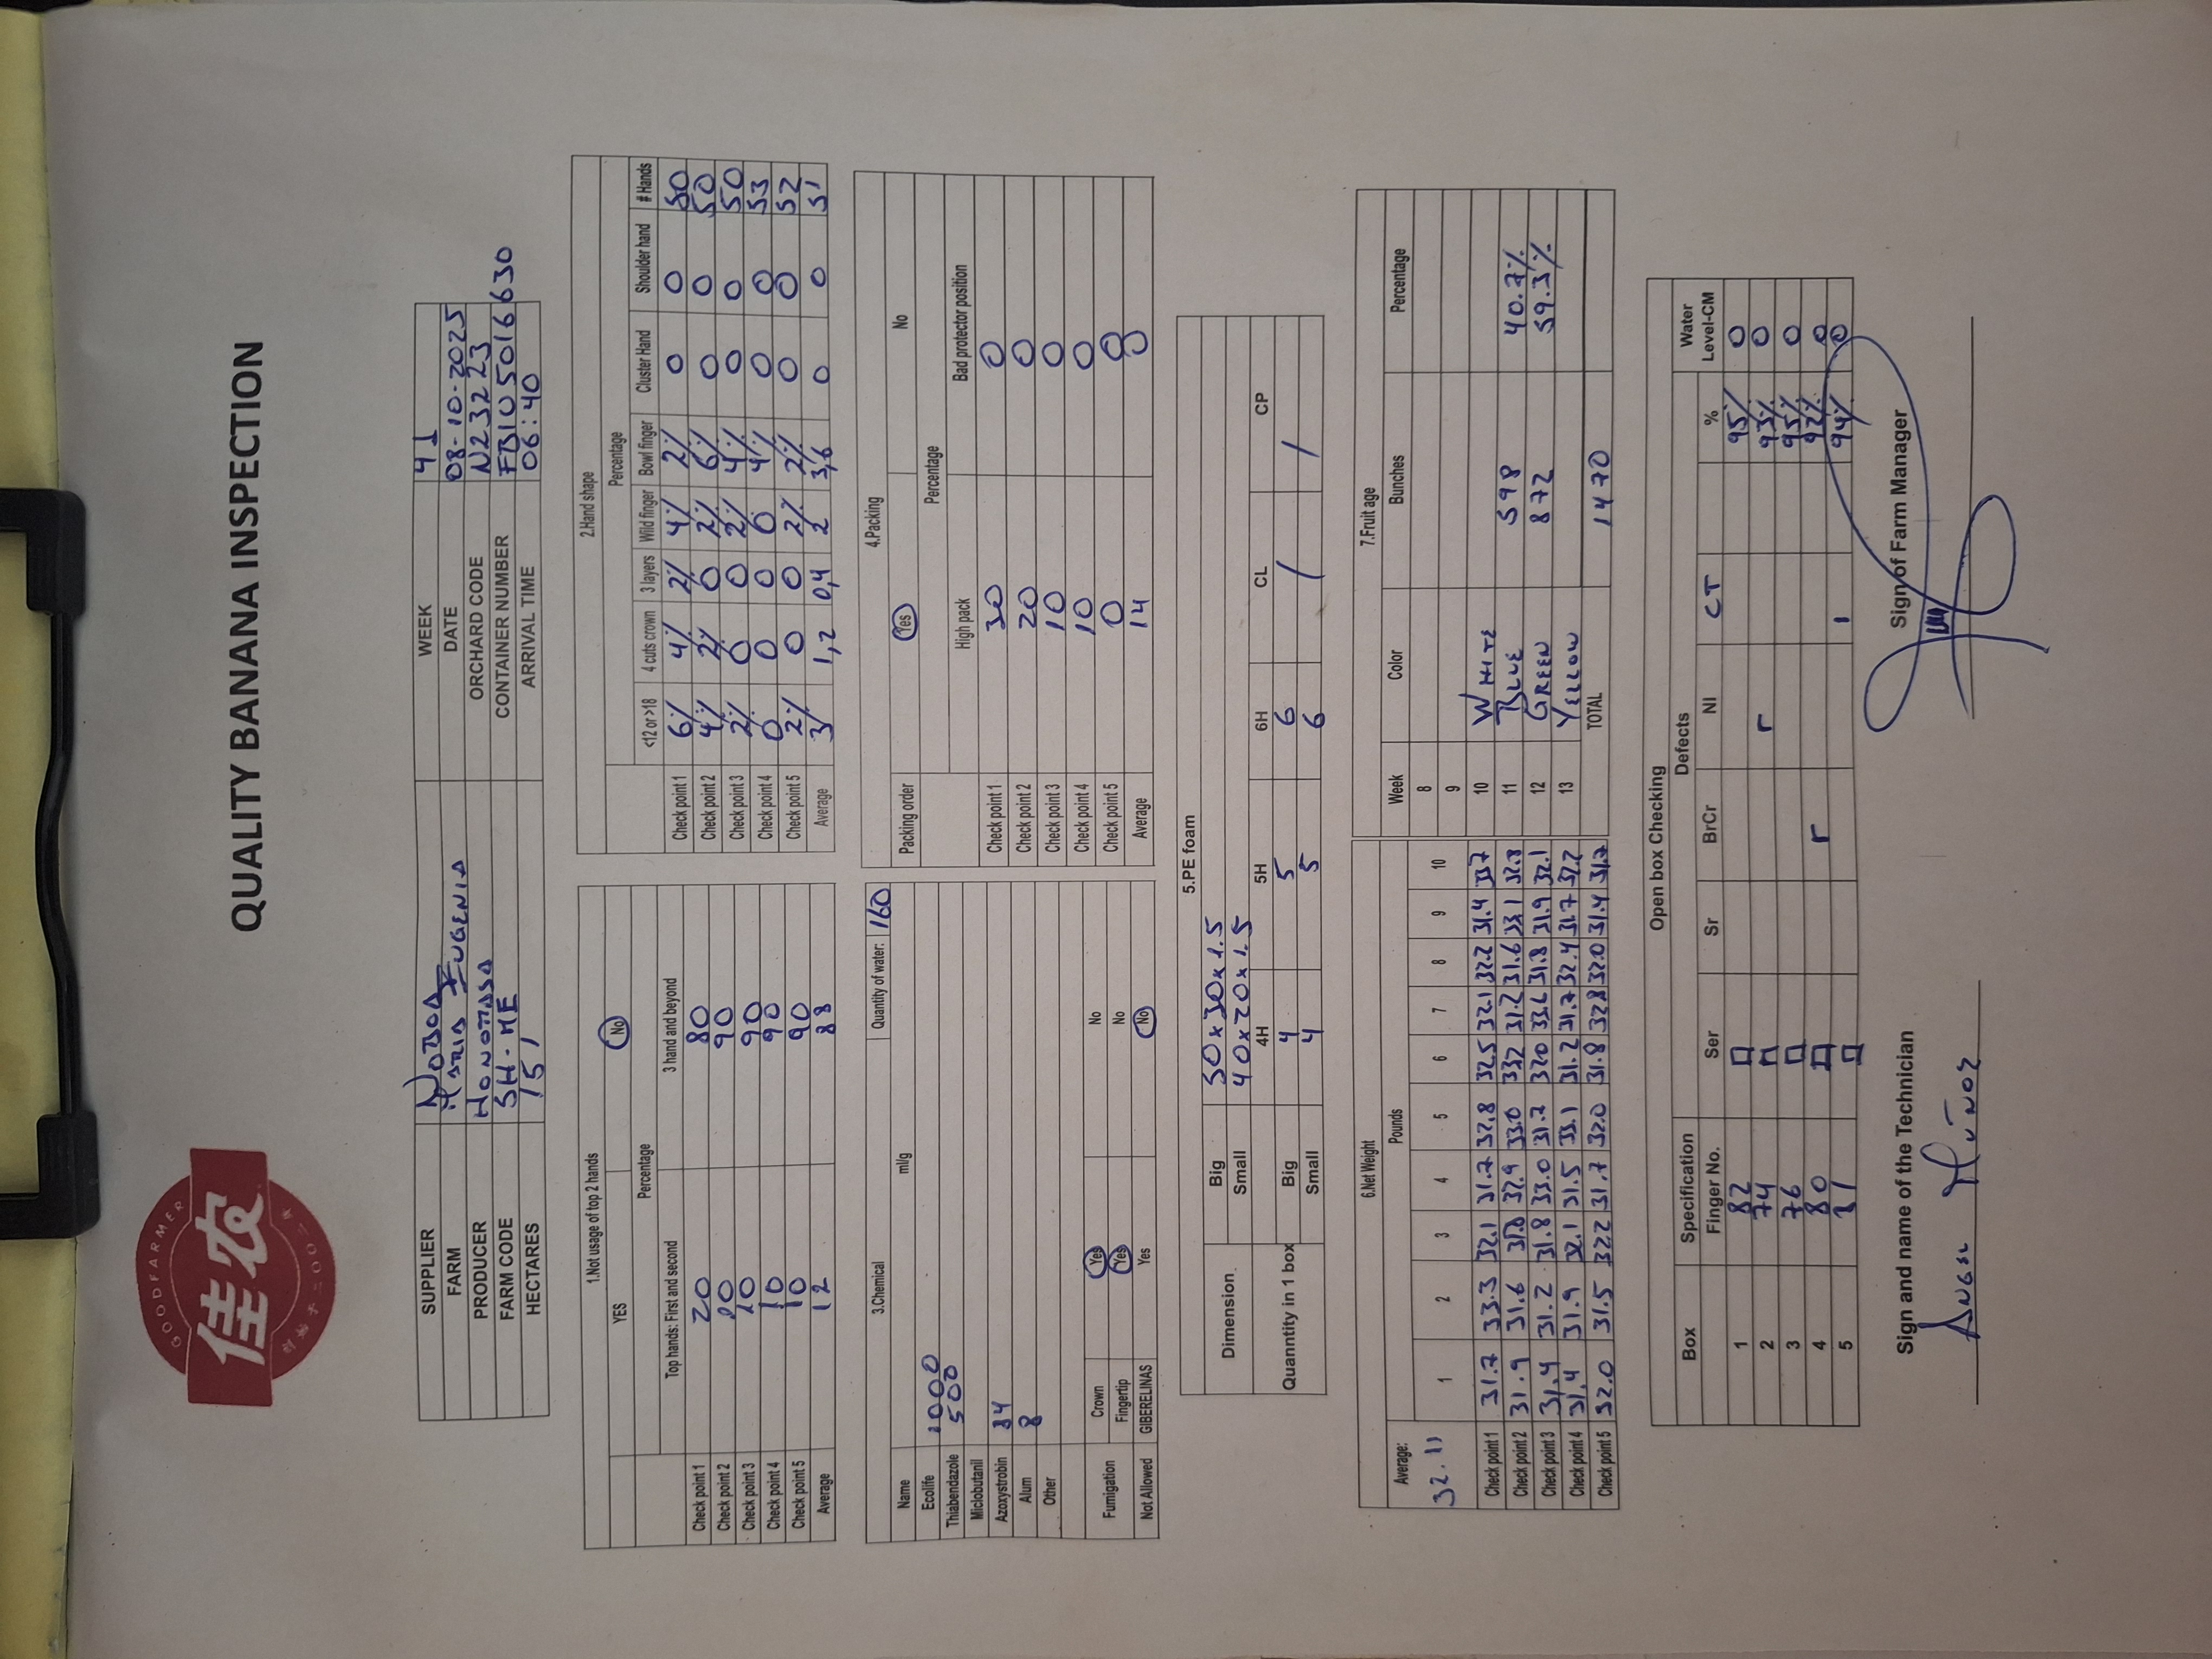 GOODFARMER
佳农
创始于二〇〇二年
QUALITY BANANA INSPECTION
SUPPLIER NOBOA WEEK 41
FARM MARIA EUGENIA DATE 08-10-2025
PRODUCER HONOMASA ORCHARD CODE N23223
FARM CODE SH-ME CONTAINER NUMBER FBIU5016630
HECTARES 151 ARRIVAL TIME 06:40
1.Not usage of top 2 hands
YES No
Percentage
Top hands: First and second 3 hand and beyond
Check point 1 20 80
Check point 2 10 90
Check point 3 10 90
Check point 4 10 90
Check point 5 10 90
Average 12 88
2.Hand shape
Percentage
<12 or >18 4 cuts crown 3 layers Wild finger Bowl finger Cluster Hand Shoulder hand # Hands
Check point 1 6% 4% 2% 4% 2% 0 0 50
Check point 2 4% 2% 0 2% 6% 0 0 50
Check point 3 2% 0 0 2% 4% 0 0 50
Check point 4 0 0 0 0 4% 0 0 53
Check point 5 2% 0 0 2% 2% 0 0 52
Average 3 1,2 0,4 2 3,6 0 0 51
3.Chemical Quantity of water: 160
Name ml/g
Ecolife 1000
Thiabendazole 500
Miclobutanil
Azoxystrobin 34
Alum 8
Other
Fumigation Crown Yes No
Fingertip Yes No
Not Allowed GIBERELINAS Yes No
4.Packing
Packing order Yes No
Percentage
High pack Bad protector position
Check point 1 30 0
Check point 2 20 0
Check point 3 10 0
Check point 4 10 0
Check point 5 0 0
Average 14 0
5.PE foam
Dimension Big 50x30x1.5
Small 40x20x1.5
4H 5H 6H CL CP
Quanntity in 1 box Big 4 5 6 / /
Small 4 5 6
6.Net Weight
Average: Pounds
32.11 1 2 3 4 5 6 7 8 9 10
Check point 1 31.7 33.3 32.1 31.7 32.8 32.5 32.1 32.2 31.4 33.7
Check point 2 31.9 31.6 31.8 32.9 33.0 33.2 31.2 31.6 33.1 32.8
Check point 3 31.4 31.2 31.8 33.0 31.7 32.0 33.6 31.8 31.9 32.1
Check point 4 31.4 31.9 32.1 31.5 33.1 31.2 31.7 32.4 31.7 32.2
Check point 5 32.0 31.5 32.2 31.7 32.0 31.8 32.8 32.0 31.4 31.7
7.Fruit age
Week Color Bunches Percentage
8
9
10 WHITE
11 BLUE 598 40.7%
12 GREEN 872 59.3%
13 YELLOW
TOTAL 1470
Open box Checking
Box Specification Defects Water
Finger No. Ser Sr BrCr NI CT % Level-CM
1 82 95% 0
2 74 r 93% 0
3 76 95% 0
4 80 r 92% 0
5 81 1 94% 0
Sign and name of the Technician Sign of Farm Manager
ANGEL MUÑOZ